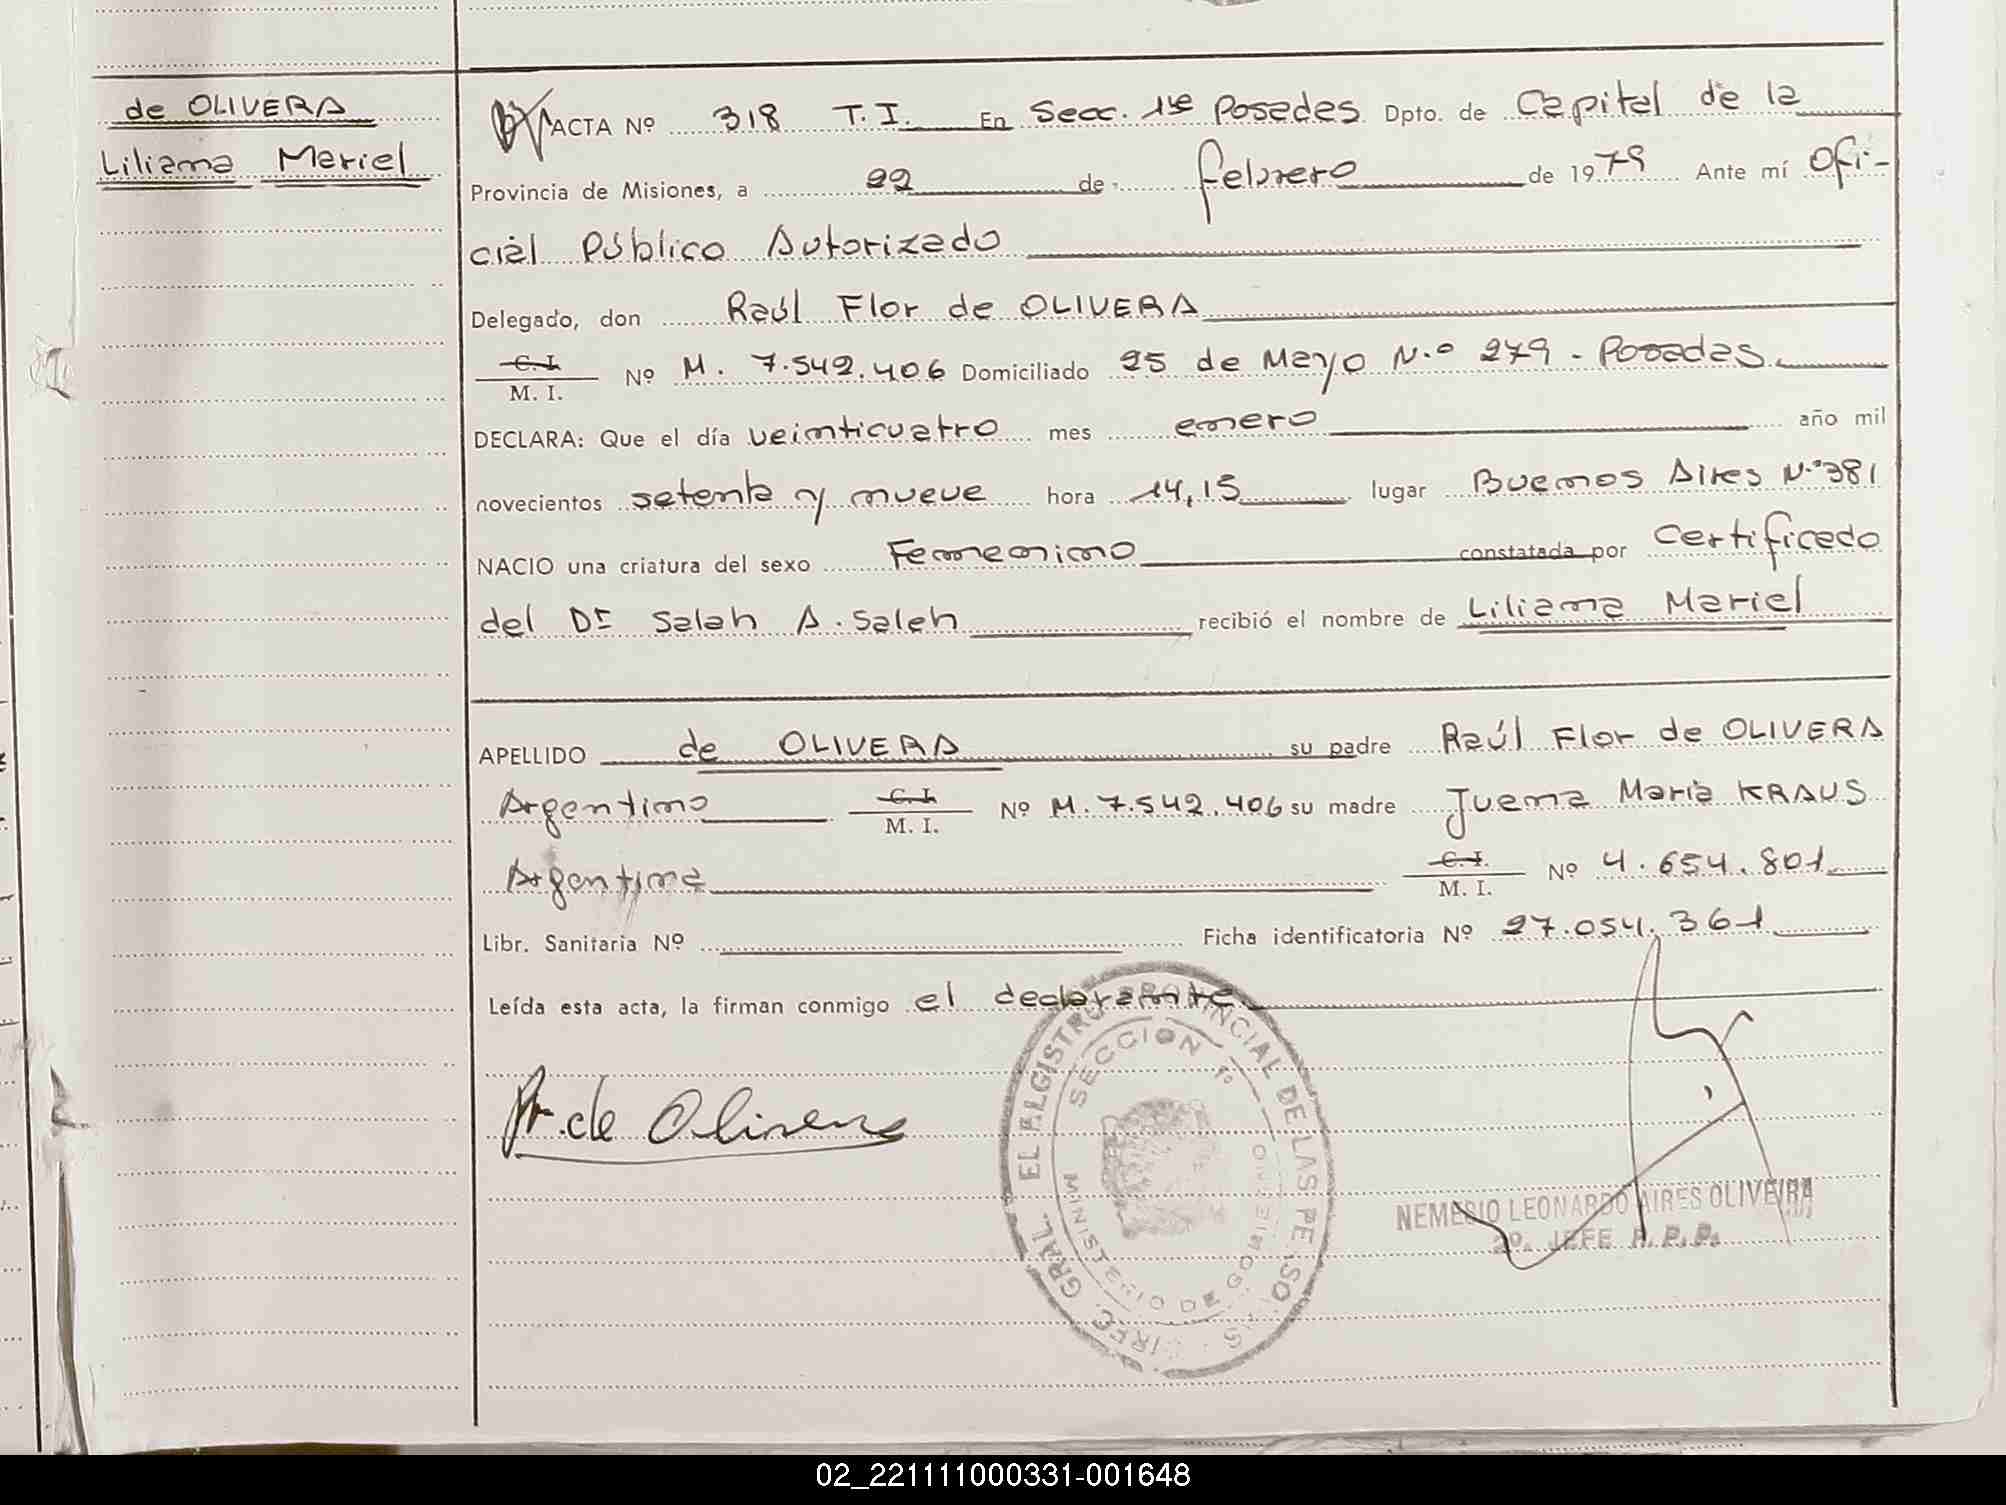 de OLIVERA
Liliana Mariel
ACTA Nº 318 T.I. En Secc. 1ra Posadas Dpto. de Capital de la
Provincia de Misiones, a 22 de febrero de 1979 Ante mí Ofi-
cial Público Autorizado
Delegado, don Raúl Flor de OLIVERA
C.I.
M. I. Nº M. 7.542.406 Domiciliado 25 de Mayo N.º 279 - Posadas.
DECLARA: Que el día veinticuatro mes enero año mil
novecientos setenta y nueve hora 14,15 lugar Buenos Aires N.º 381
NACIO una criatura del sexo Femenino constatada por Certificado
del Dr Salah A. Saleh recibió el nombre de Liliana Mariel
APELLIDO de OLIVERA su padre Raúl Flor de OLIVERA
Argentino C.I. M. I. Nº M. 7.542.406 su madre Juana María KRAUS
Argentina C.I. M. I. Nº 4.654.801
Libr. Sanitaria Nº Ficha identificatoria Nº 27.054.361
Leída esta acta, la firman conmigo el declarante.
R. de Olivera
SECCION 1º
NEMESIO LEONARDO AIRES OLIVEIRA
2º. JEFE R.P.P.
02_221111000331-001648